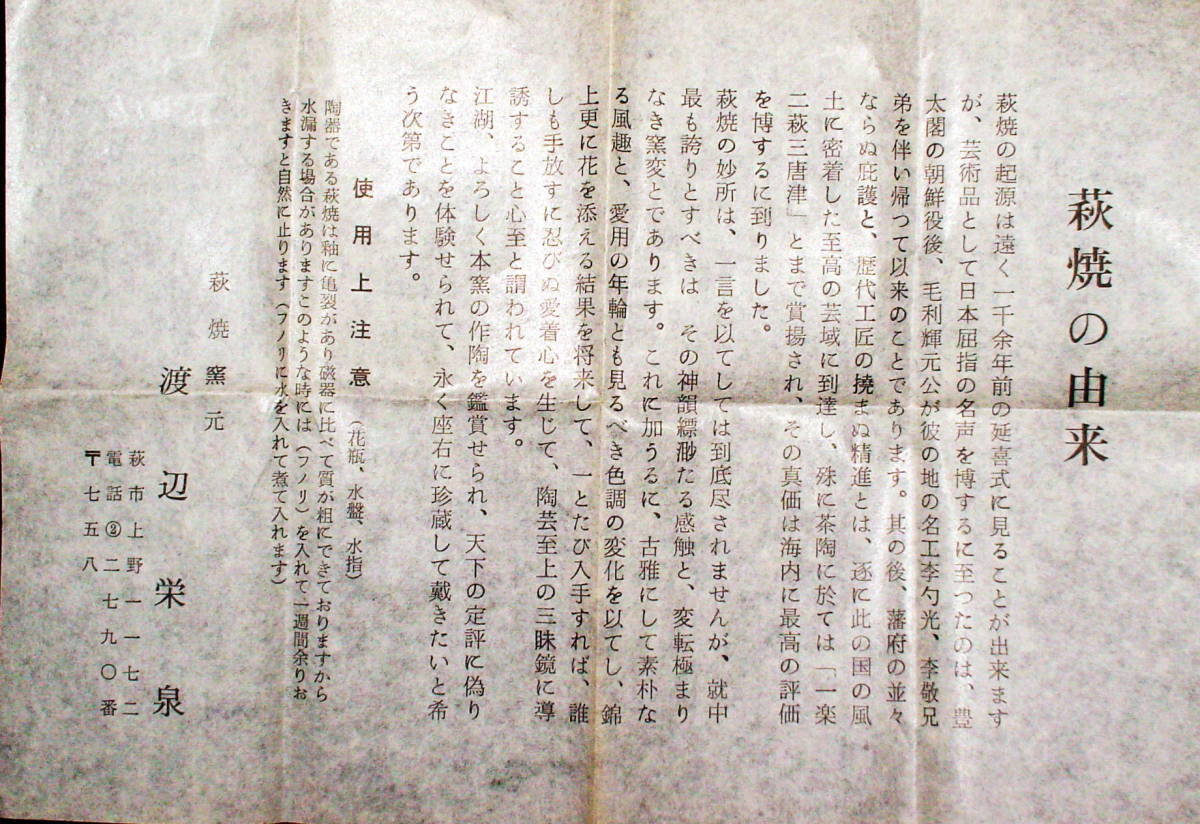 萩焼の由来
萩焼の起源は遠く一千余年前の延喜式に見ることが出来ます
が、芸術品として日本屈指の名声を博するに至つたのは、豊
太閤の朝鮮役後、毛利輝元公が彼の地の名工李勺光、李敬兄
弟を伴い帰つて以来のことであります。其の後、藩府の並々
ならぬ庇護と、歴代工匠の撓まぬ精進とは、逐に此の国の風
土に密着した至高の芸域に到達し、殊に茶陶に於ては「一楽
二萩三唐津」とまで賞揚され、その真価は海内に最高の評価
を博するに到りました。
萩焼の妙所は、一言を以てしては到底尽されませんが、就中
最も誇りとすべきは その神韻縹渺たる感触と、変転極まり
なき窯変とであります。これに加うるに、古雅にして素朴な
る風趣と、愛用の年輪とも見るべき色調の変化を以てし、錦
上更に花を添える結果を将来して、一とたび入手すれば、誰
しも手放すに忍びぬ愛着心を生じて、陶芸至上の三昧鏡に導
誘すること心至と謂われています。
江湖、よろしく本窯の作陶を鑑賞せられ、天下の定評に偽り
なきことを体験せられて、永く座右に珍蔵して戴きたいと希
う次第であります。
使用上注意（花瓶、水盤、水指）
陶器である萩焼は釉に亀裂があり磁器に比べて質が粗にできておりますから
水漏する場合がありますこのような時には（フノリ）を入れて一週間余りお
きますと自然に止ります（フノリに水を入れて煮て入れます）
萩焼窯元
渡辺栄泉
萩市上野一一七二
電話②二七九〇番
〒七五八